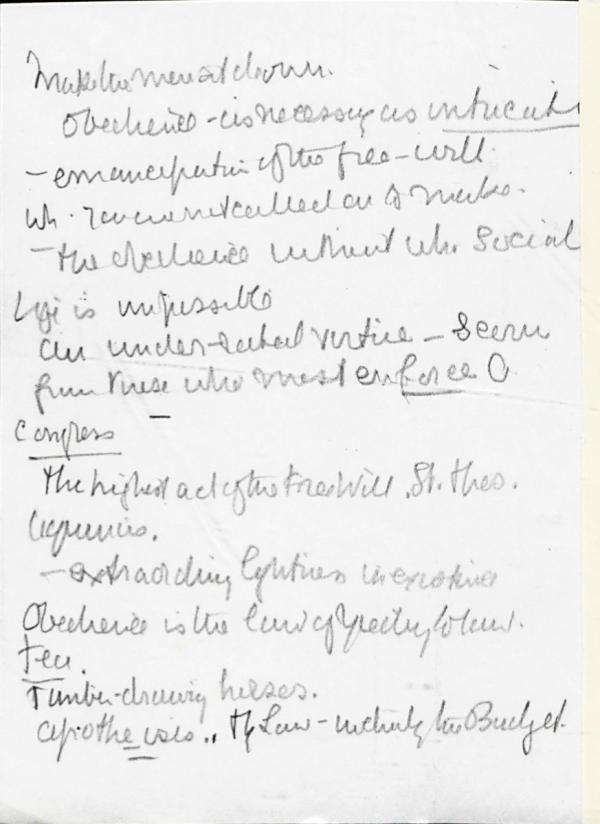 Make the men sit down.
Obedience - is necessary as
- emancipation of the free-will.
wh. I am not called on to make.
- the obedience without wh. Social
Life is impossible
an under-rated virtue - Scorn
from those who must enforce O
Congress
The highest act of the Free Will. St. Thos.
Aquinas.
- extraordinary lightness in
Obedience is the
Tea.
Timber-drawing horses.
apotheosis .. of Law - including the Budget.